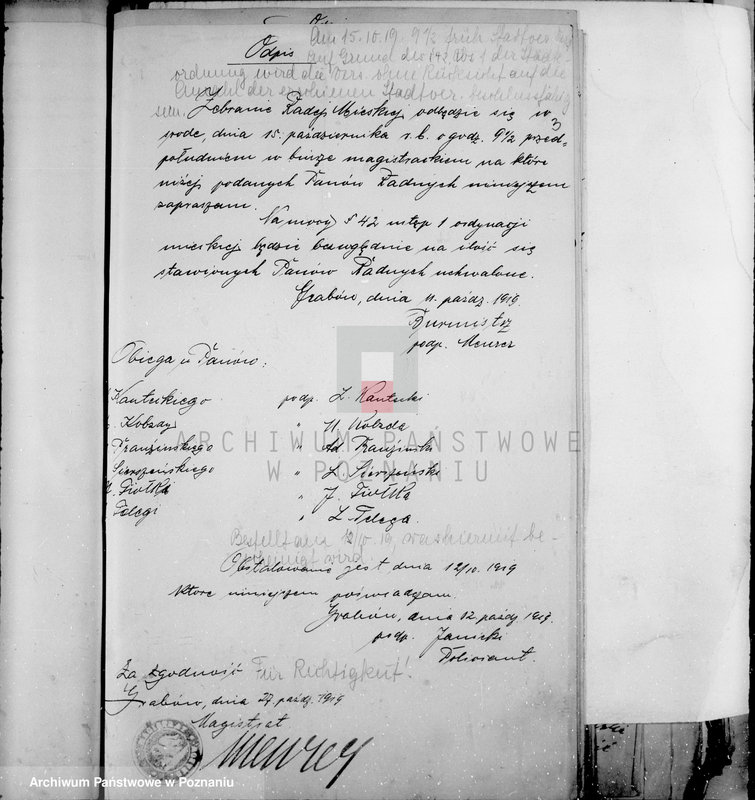 Odpis
Am 15.10.19. 9½ früh Stadtver.
auf Grund des § 42 Abs 1 der Städte-
ordnung wird die Vers. ohne Rücksicht auf die
Anzahl der erschienen Stadtver. beschlussfähig
sein.
Zebranie Radej Miejskiej odbędzie się w
środę, dnia 15. października r.b. o godz. 9½ przed-
południem w biurze magistrackiem na które
niżej podanych Panów Radnych niniejszem
zapraszam.
Na mocy § 42 ustęp 1 ordynacji
miejskiej będzie bezwzględnie na ilość się
stawionych Panów Radnych uchwalone.
Grabów, dnia 11. paźdz. 1919.
Burmistrz
podp. Meurer
Obiega u Panów:
Kanteckiego podp. L. Kantecki
Kobzdy " M. Kobzda
" Ad.
Sierszeńskiego " L. Sierszeński
Fiołki " J. Fiołka
Telegi " L. Telega.
Bestellt am 12/10. 19, was hiermit be-
scheinigt wird.
Obstalowano jest dnia 12/10. 1919
które niniejszem poświadczam.
Grabów, dnia 12. paźdz 1919.
podp. Janicki
Polisiant.
Za zgodność Für Richtigkeit!
Grabów, dnia 27. paźdz. 1919
Magistrat
Meurer
ARCHIWUM PAŃSTWOWE
W POZNANIU
Archiwum Państwowe w Poznaniu